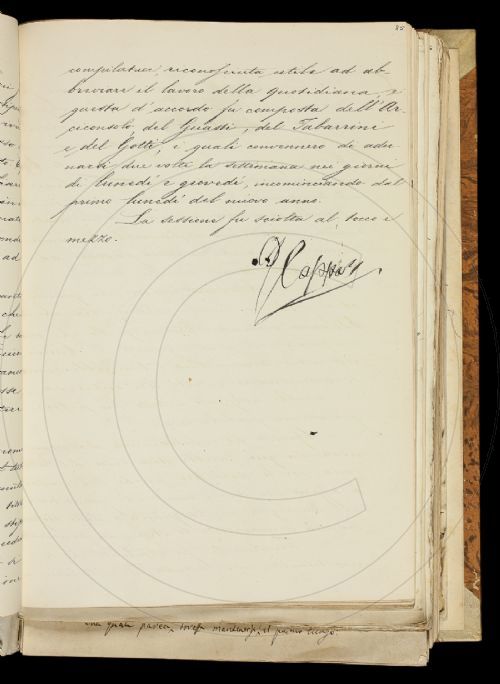 85
compilatrice, riconosciuta utile ad ab-
breviare il lavoro della quotidiana, e
questa d'accordo fu composta dell'Ar-
ciconsolo, del Guasti, del Tabarrini
e del Gotti, i quali convennero di adu-
narsi due volte la settimana nei giorni
di lunedì e giovedì, incominciando dal
primo lunedì del nuovo anno.
La sessione fu sciolta al tocco e
mezzo.